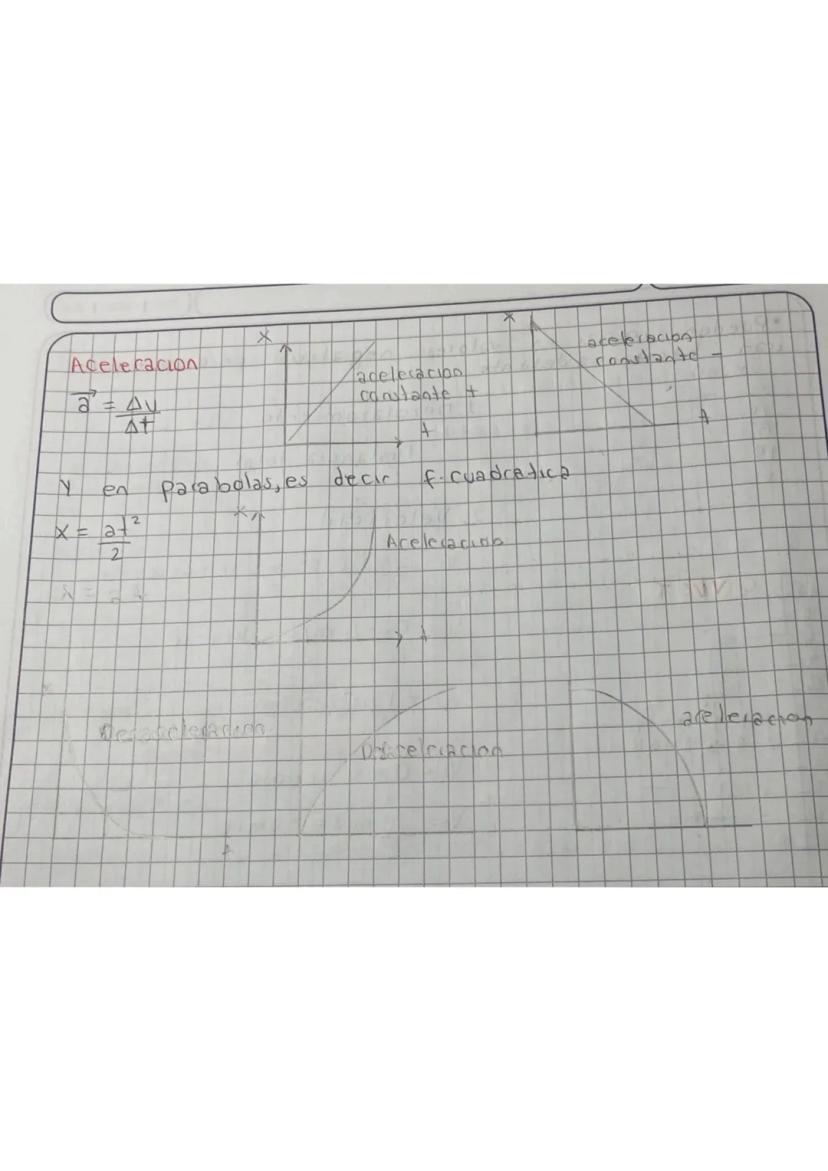 Aceleracion
x
aceleracion
constante +
t
x
aceleracion
constante -
t
a⃗ = Δv/Δt
Y en parabolas, es decir f. cuadratica
x = at²/2
x
Aceleracion
t
Desaceleracion
t
Desacelracion
aceleracion